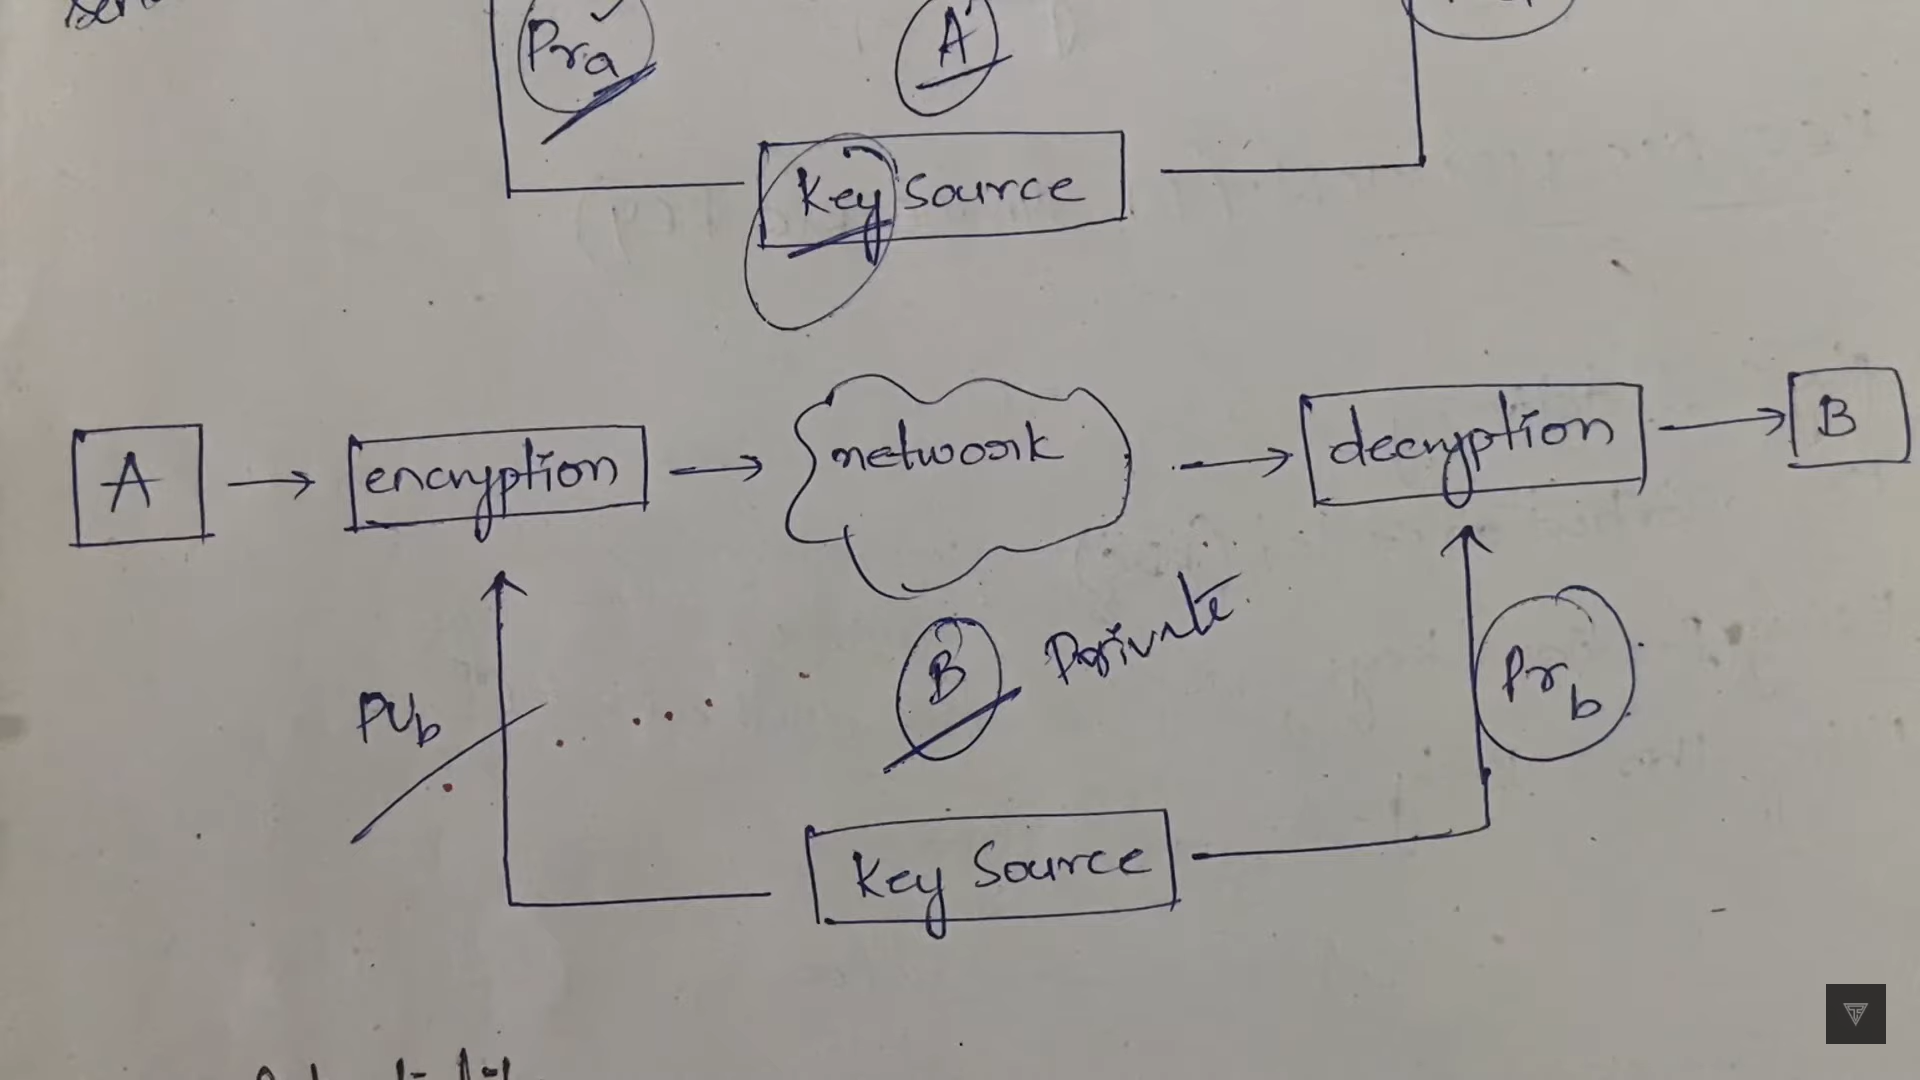 Pra
A
Key Source
A
encryption
network
decryption
B
PUb
B
Private
Prb
Key Source